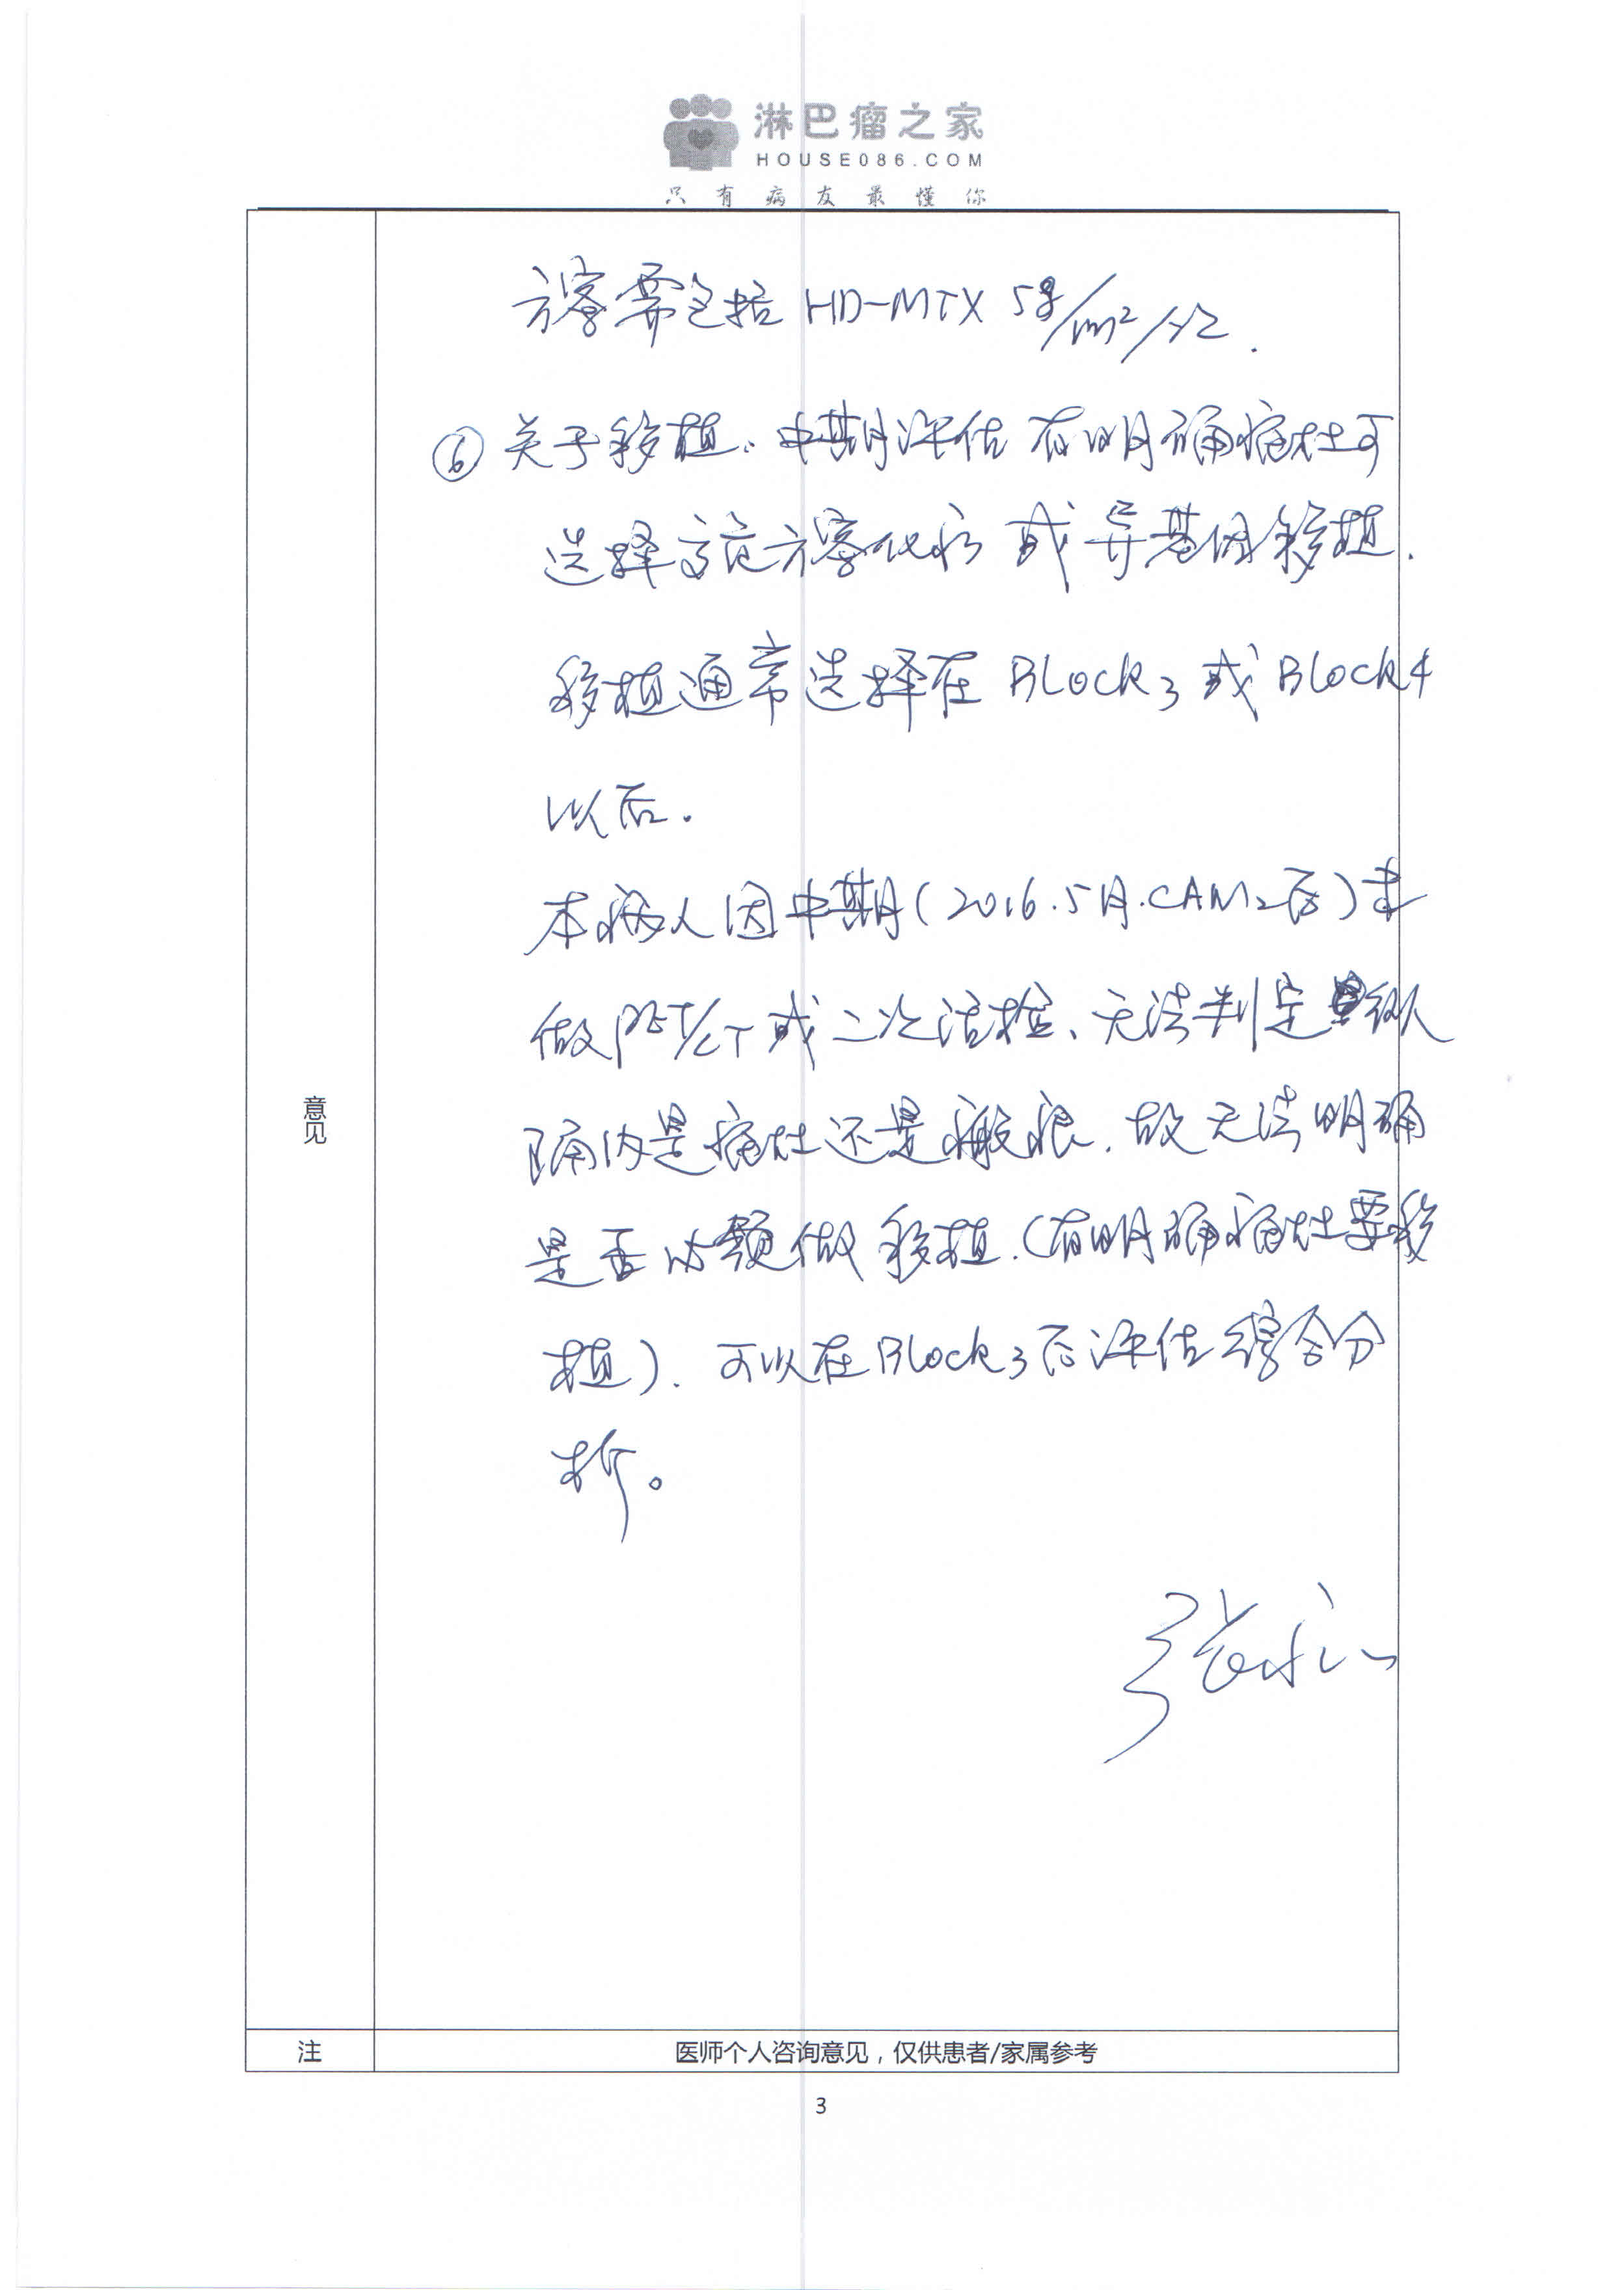 淋巴瘤之家
HOUSE086.COM
只有病友最懂你
方案需包括 HD-MTX 5g/m²/次.
⑥ 关于移植:中期评估有明确病灶可
选择高危方案化疗或异基因移植.
移植通常选择在 BLock3 或 BLock4
以后.
本病人因中期(2016.5月.CAM2后)未
做PET/CT或二次活检、无法判定纵
隔内是病灶还是瘢痕.故无法明确
是否必须做移植.(有明确病灶要移
植).可以在BLock3后评估综合分
析。
张永
意见
注
医师个人咨询意见,仅供患者/家属参考
3